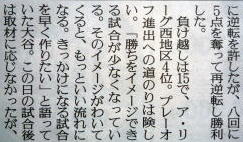 に逆転を許したが、八回に
5点を奪って再逆転し勝利
した。
負け越しは15で、ア・リ
ーグ西地区4位。プレーオ
フ進出への道のりは険し
い。「勝ちをイメージでき
る試合が少なくなってい
る。そのイメージがわいて
くると、もっといい流れに
なる。きっかけになる試合
を早く作りたい」と語って
いた大谷。この日の試合後
は取材に応じなかったが、